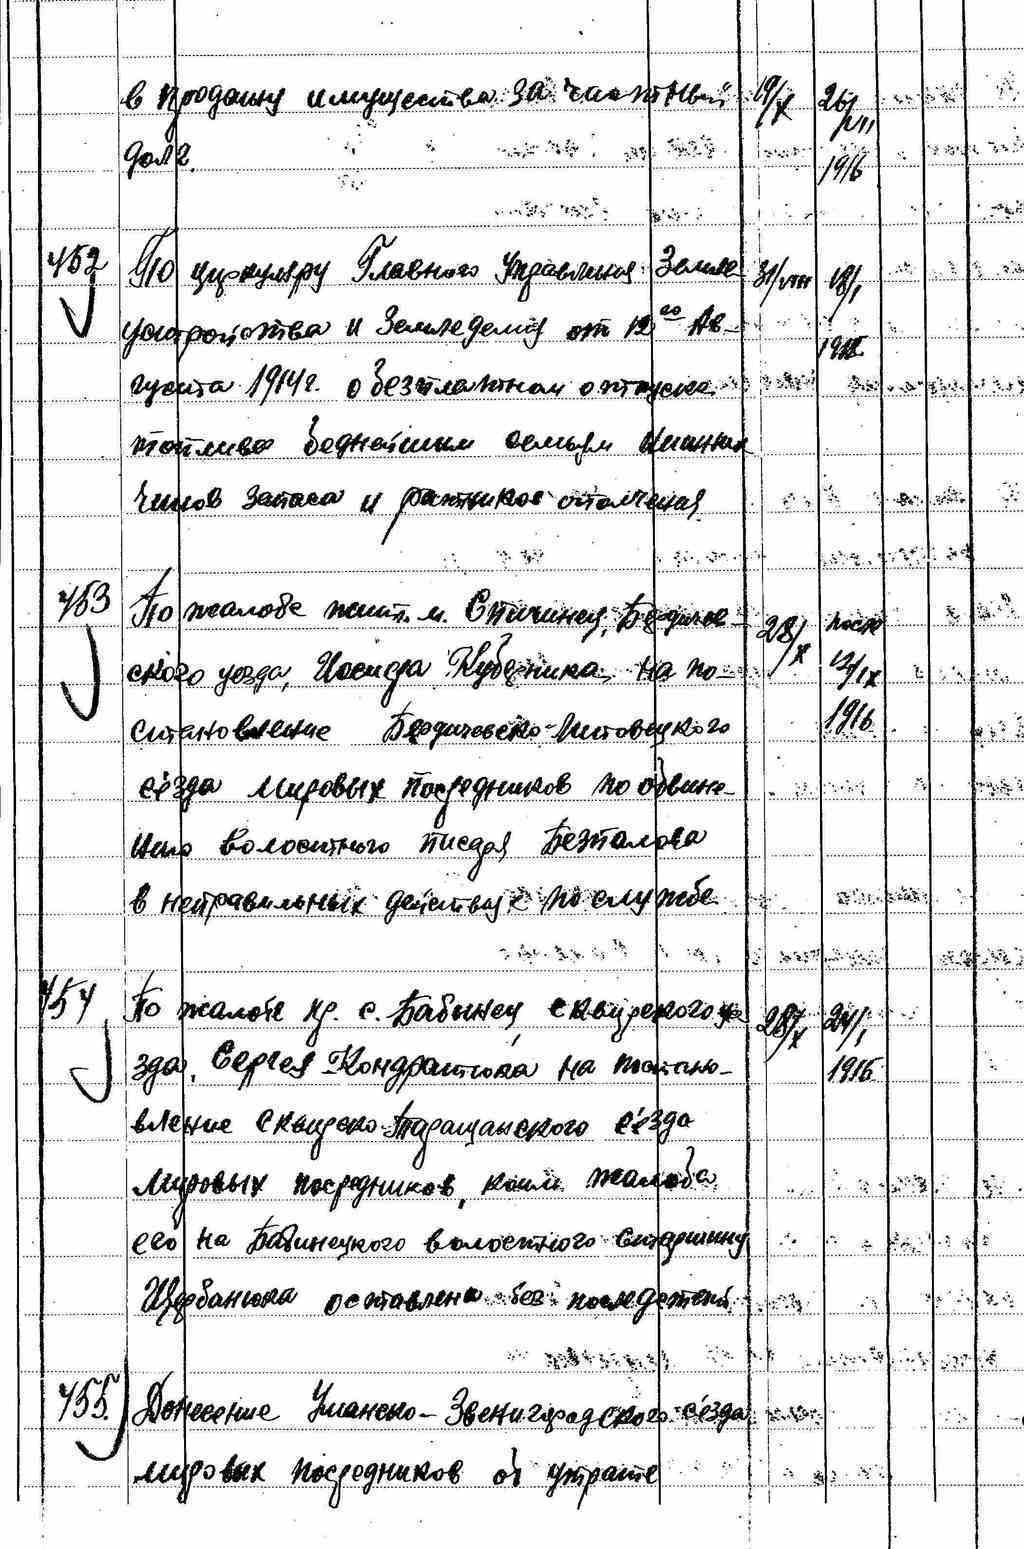 в продажу имущества за частный 19/X 26/VII
долг. 1916
452 По циркуляру Главного Управления Земле- 31/VIII 18/I
устройства и Земледелия от 12го Ав-
густа 1914г. о безплатном отпуске
топлива беднейшим семьям нижних
чинов запаса и ратников ополчения
453 По жалобе жит. м. Спичинец, Бердичев- 28/X
ского уезда, Иосифа Кубеника, на по- 12/IX
становление Бердичевско-Липовецкого 1916
съезда мировых посредников по обвине-
нию волостного писаря Безпалова
в неправильных действиях по службе
454 По жалобе кр. с. Бабинец, Сквирского уе- 28/X 24/I
зда, Сергея Кондратюка на постано- 1916
вление Сквирско-Таращанского съезда
мировых посредников, коим жалоба
его на Бабинецкого волостного старшину
Щербанюка оставлена без последствий
455. Донесение Уманско-Звенигородского съезда
мировых посредников об утрате